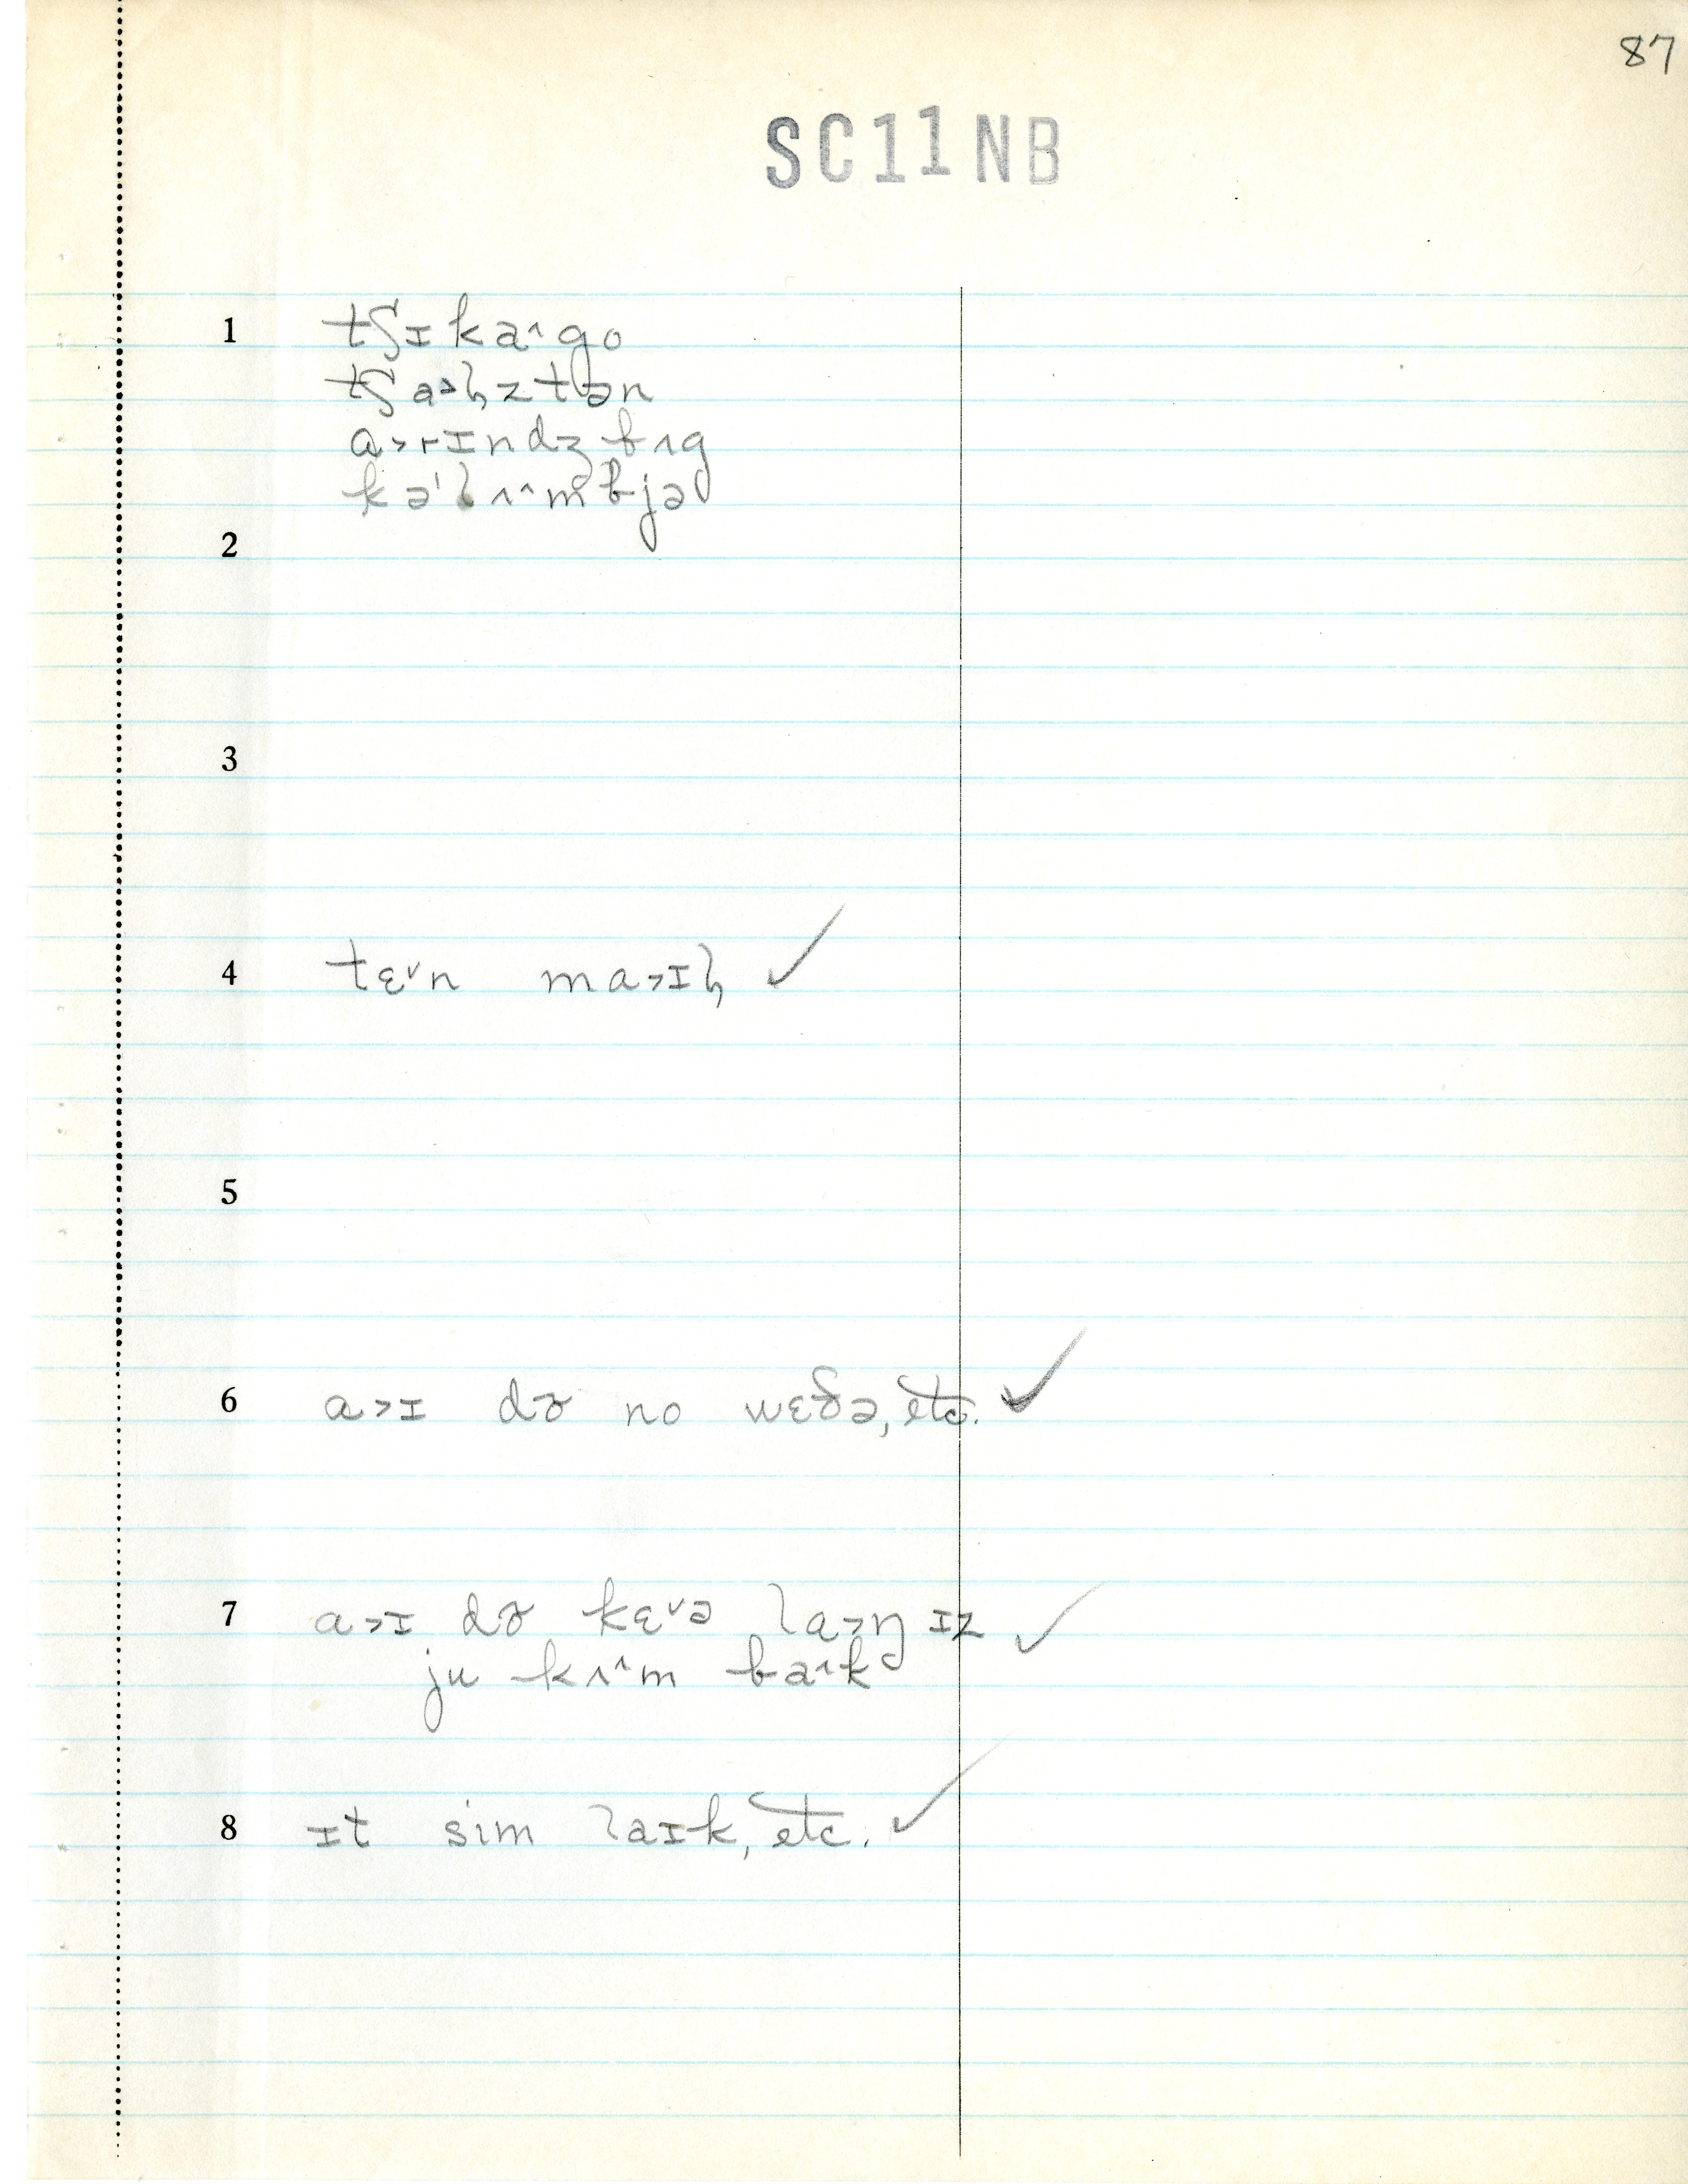 87
SC11NB
1 tʃɪka˄go
tʃa˃ɫztən
a˃rɪndʒbɪg
kə'lʌ˄mbjə
2
3
4 tɛ˅n ma˃ɪɫ ✓
5
6 a˃ɪ dɤ no wɛðə, etc. ✓
7 a˃ɪ dɤ kɛ˅ə la˃ŋ ɪz ✓
ju kʌ˄m ba˄k
8 ɪt sim laɪk, etc. ✓